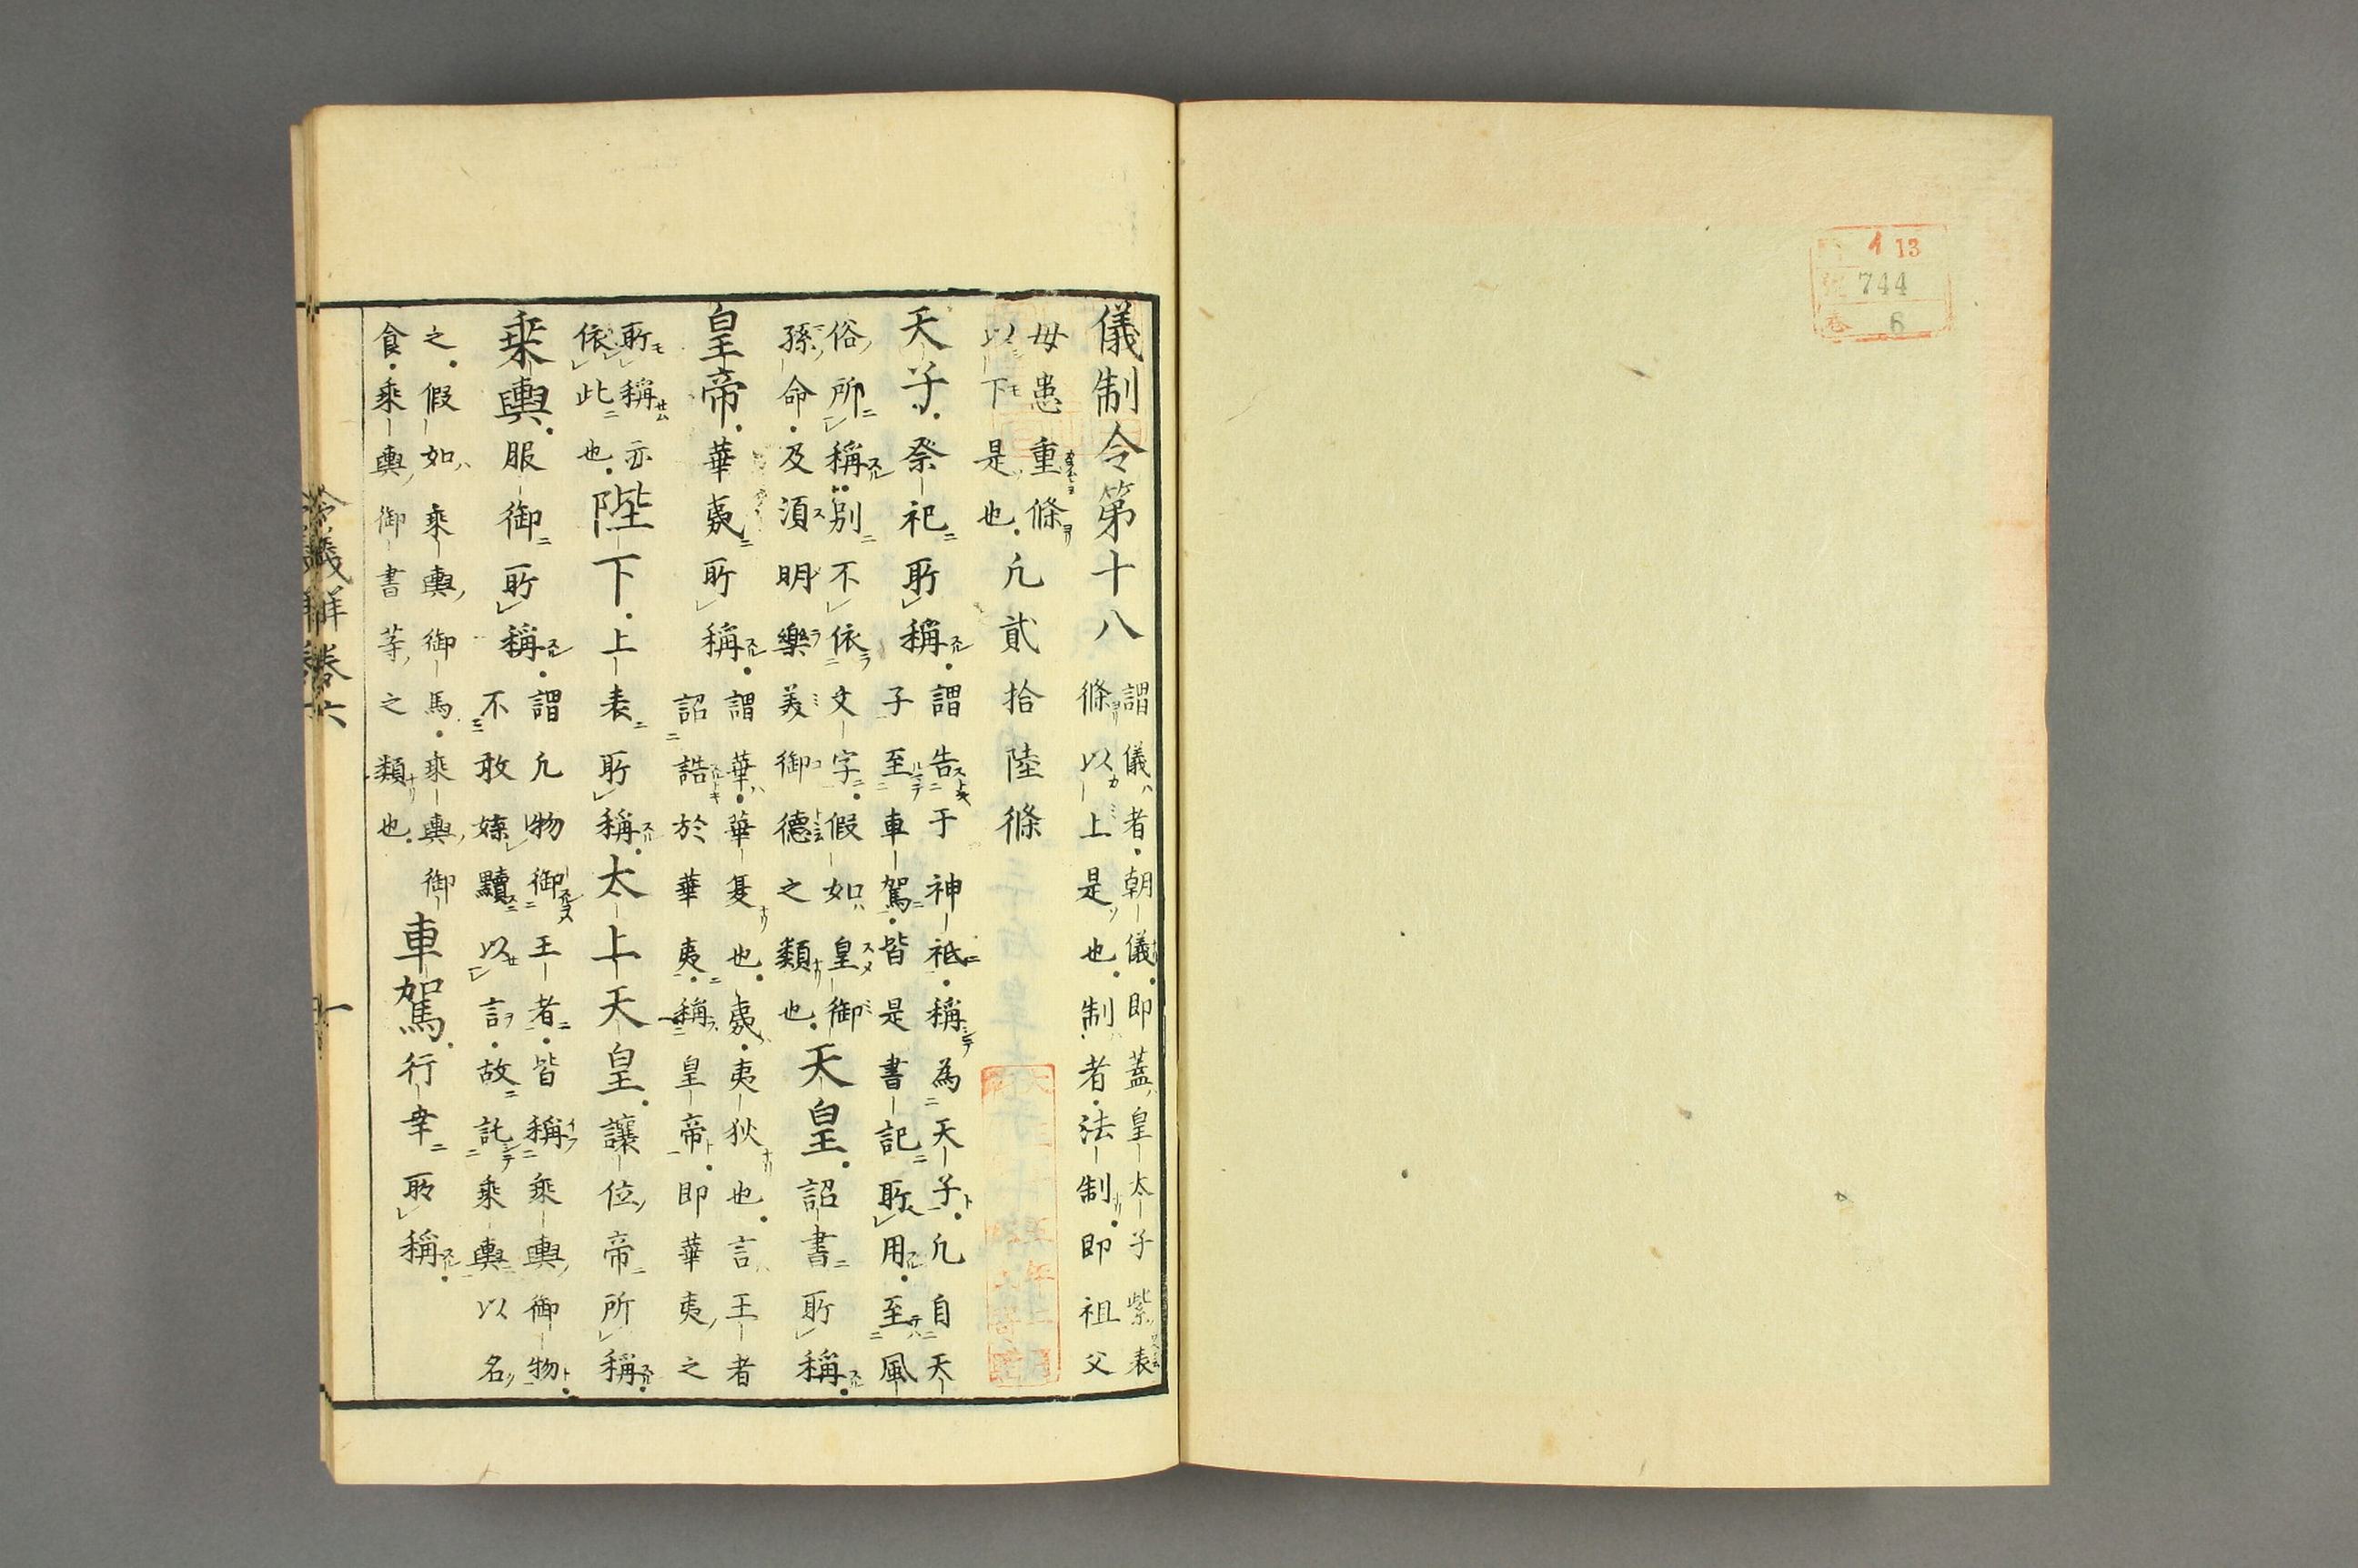 イ 13
號 744
卷 6
儀制令第十八
謂儀者朝儀即蓋皇太子紫表
條以上是也制者法制即祖父
母患重條
以下是也
凡貳拾陸條
天子祭祀所稱
謂告于神祇稱為天子凡自天
子至車駕皆是書記所用至風
俗所稱別不依文字假如皇御
孫命及須明樂美御德之類也
天皇詔書所稱
皇帝華夷所稱
謂華華夏也夷夷狄也言王者
詔誥於華夷稱皇帝即華夷之
所稱亦
依此也
陛下上表所稱太上天皇讓位帝所稱
乘輿服御所稱
謂凡物御王者皆稱乘輿御物
不敢媟黷以言故託乘輿以名
之假如乘輿御馬乘輿御
食乘輿御書等之類也
車駕行幸所稱
令義解卷六 一